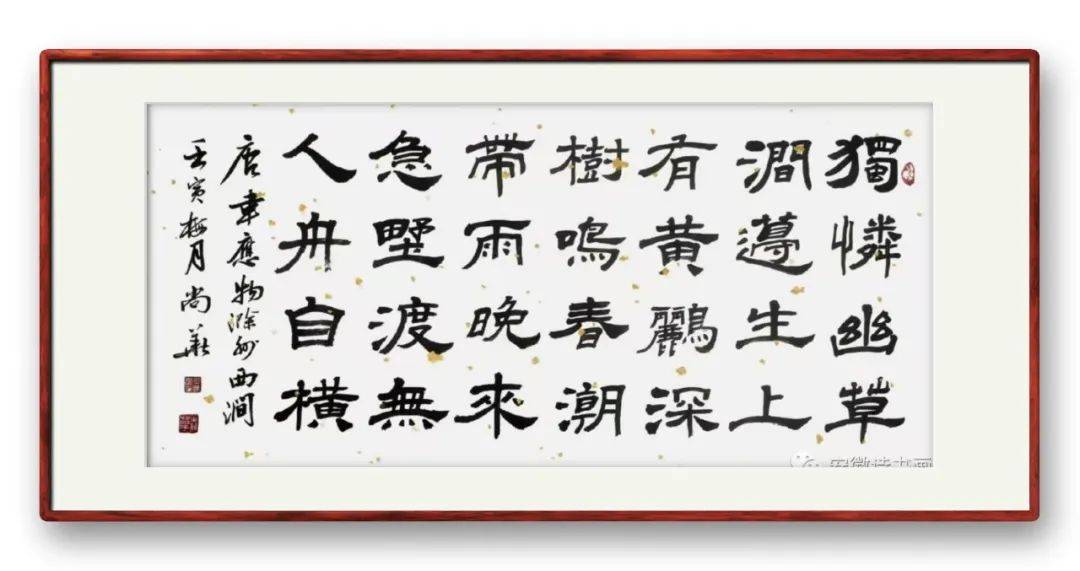 獨憐幽草
澗邊生上
有黃鸝深
樹鳴春潮
帶雨晚來
急野渡無
人舟自橫
唐韋應物滁州西澗
壬寅梅月尚華
安徽诗书画